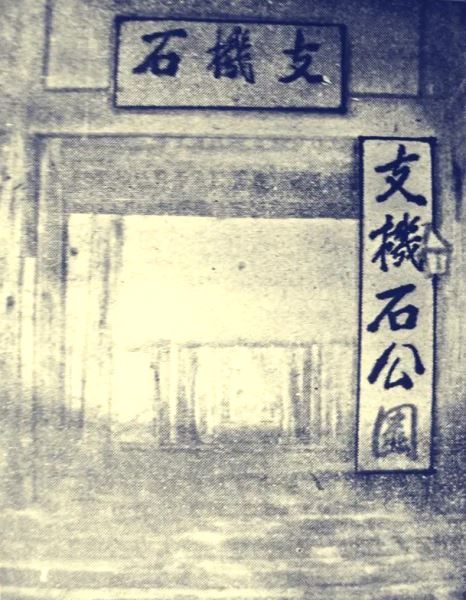 支機石
支機石公園